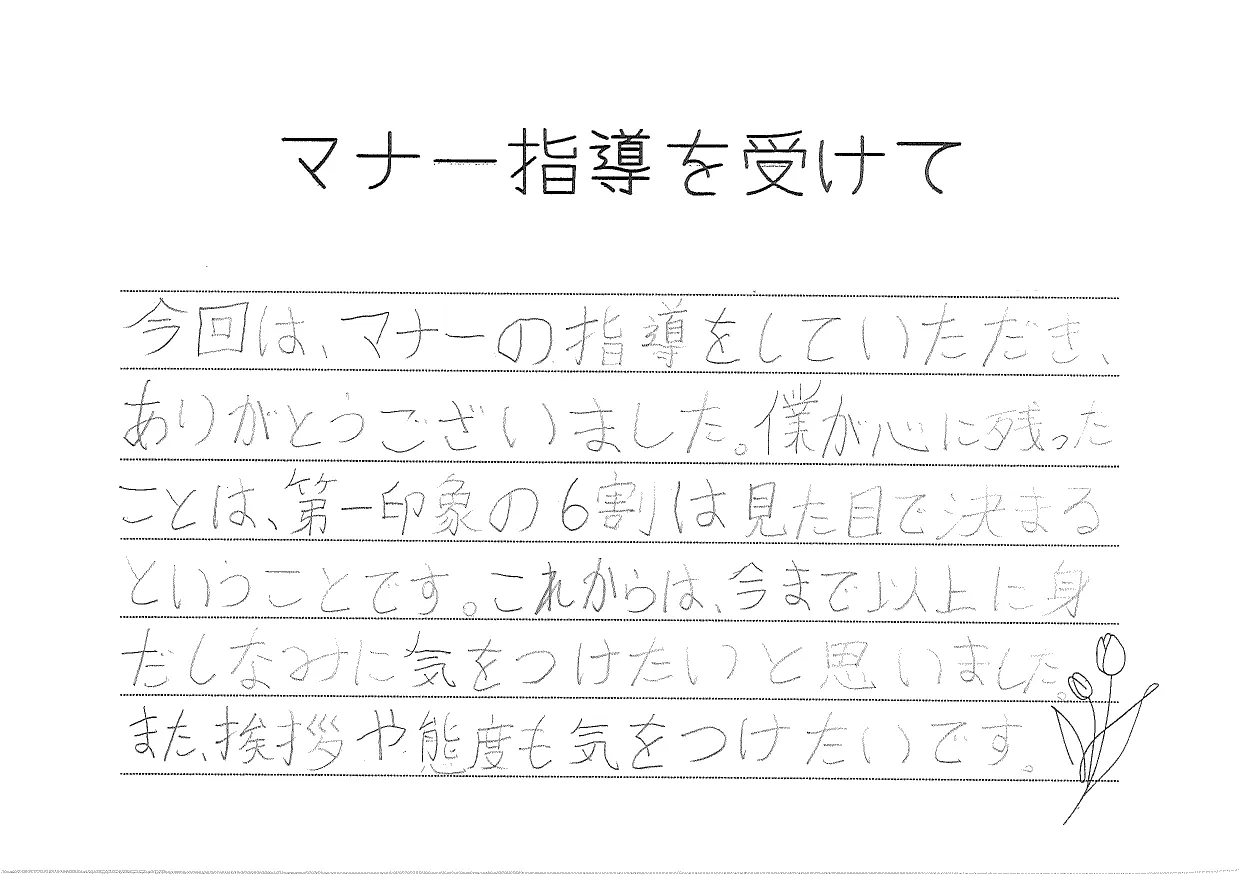 マナー指導を受けて
今回は、マナーの指導をしていただき、
ありがとうございました。僕が心に残った
ことは、第一印象の6割は見た目で決まる
ということです。これからは、今まで以上に身
だしなみに気をつけたいと思いました。
また、挨拶や態度も気をつけたいです。